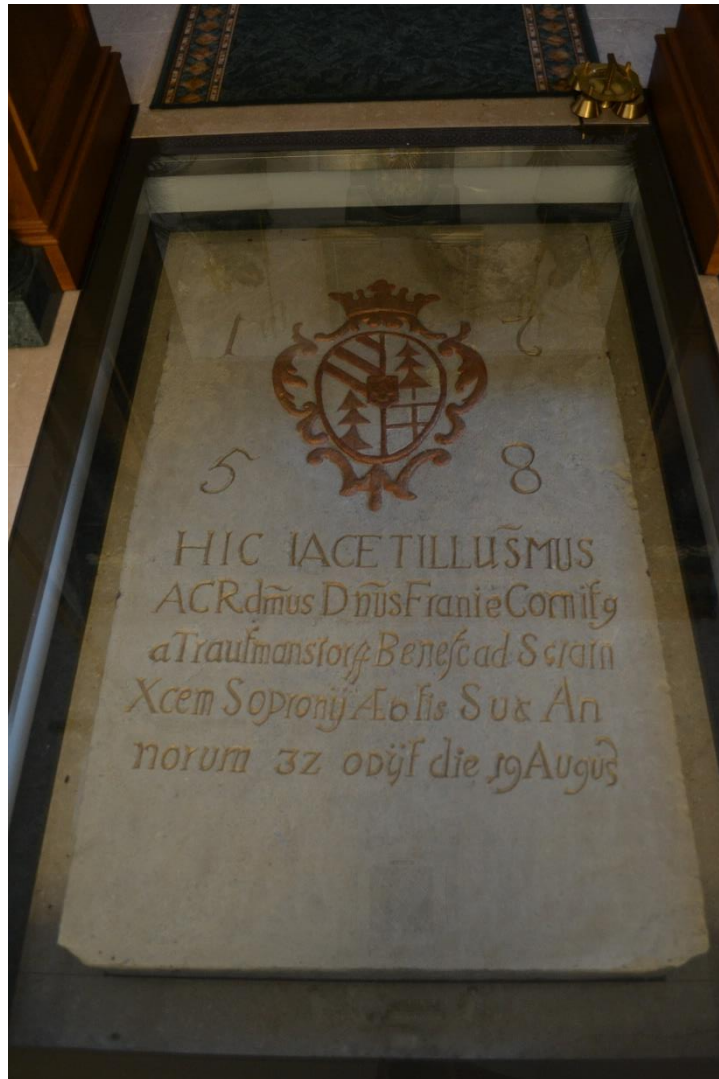 1 7
5 8
HIC IACET ILLUS̃MUS
AC Rdm̃us Dnũs Franiẽ Comit9
a Trautmanstorff Benefc ad S cram
Xcem Sopronÿ Æotis Suæ An
norum 32 oDÿt die 19 Augus